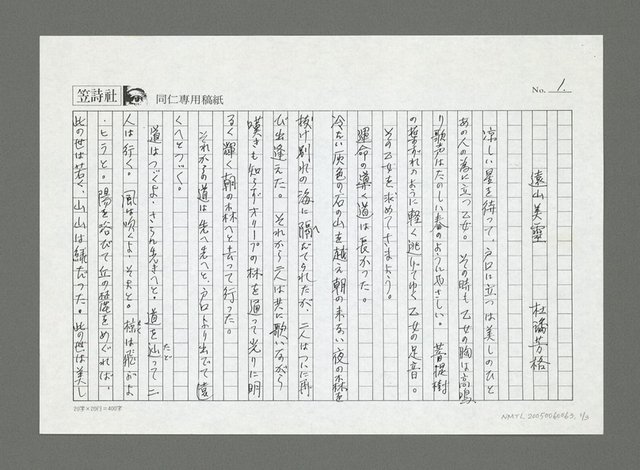 笠詩社
同仁専用稿紙
No. 1.
遠山美靈
杜潘芳格
涼しい星を待って、戸口に立つは美しのひと
あの人の為に立つ乙女。その時も乙女の胸は高鳴
り歌声はたのしい春のようにやさしい。 菩提樹
のように軽く逃してゆく乙女の足音。
その乙女を求めてさまよう。
運命の導く道は長かった。
冷たい灰色の石の山を越え朝の来ない夜の森を
抜け別れの海に隔だてられたが、二人はついに再
び出逢えた。それから二人は共に歌いながら
嘆きも知らずオリーブの林を通って光りに明
るく輝く朝の森へと去って行った。
それからの道は先へ先へと、戸口より出でて遠
くへとつづく。
道はつづくよ、さらに先きへと。道を辿って二
人は行く。風は吹くよ、そよと。 は飛ぶよ
・ヒラと。陽を浴びて丘の麓をめぐれば、
此の世は若く、山山は緑だった。此の世は美し
20字×20行=400字
NMTL 20050060063, 1/3